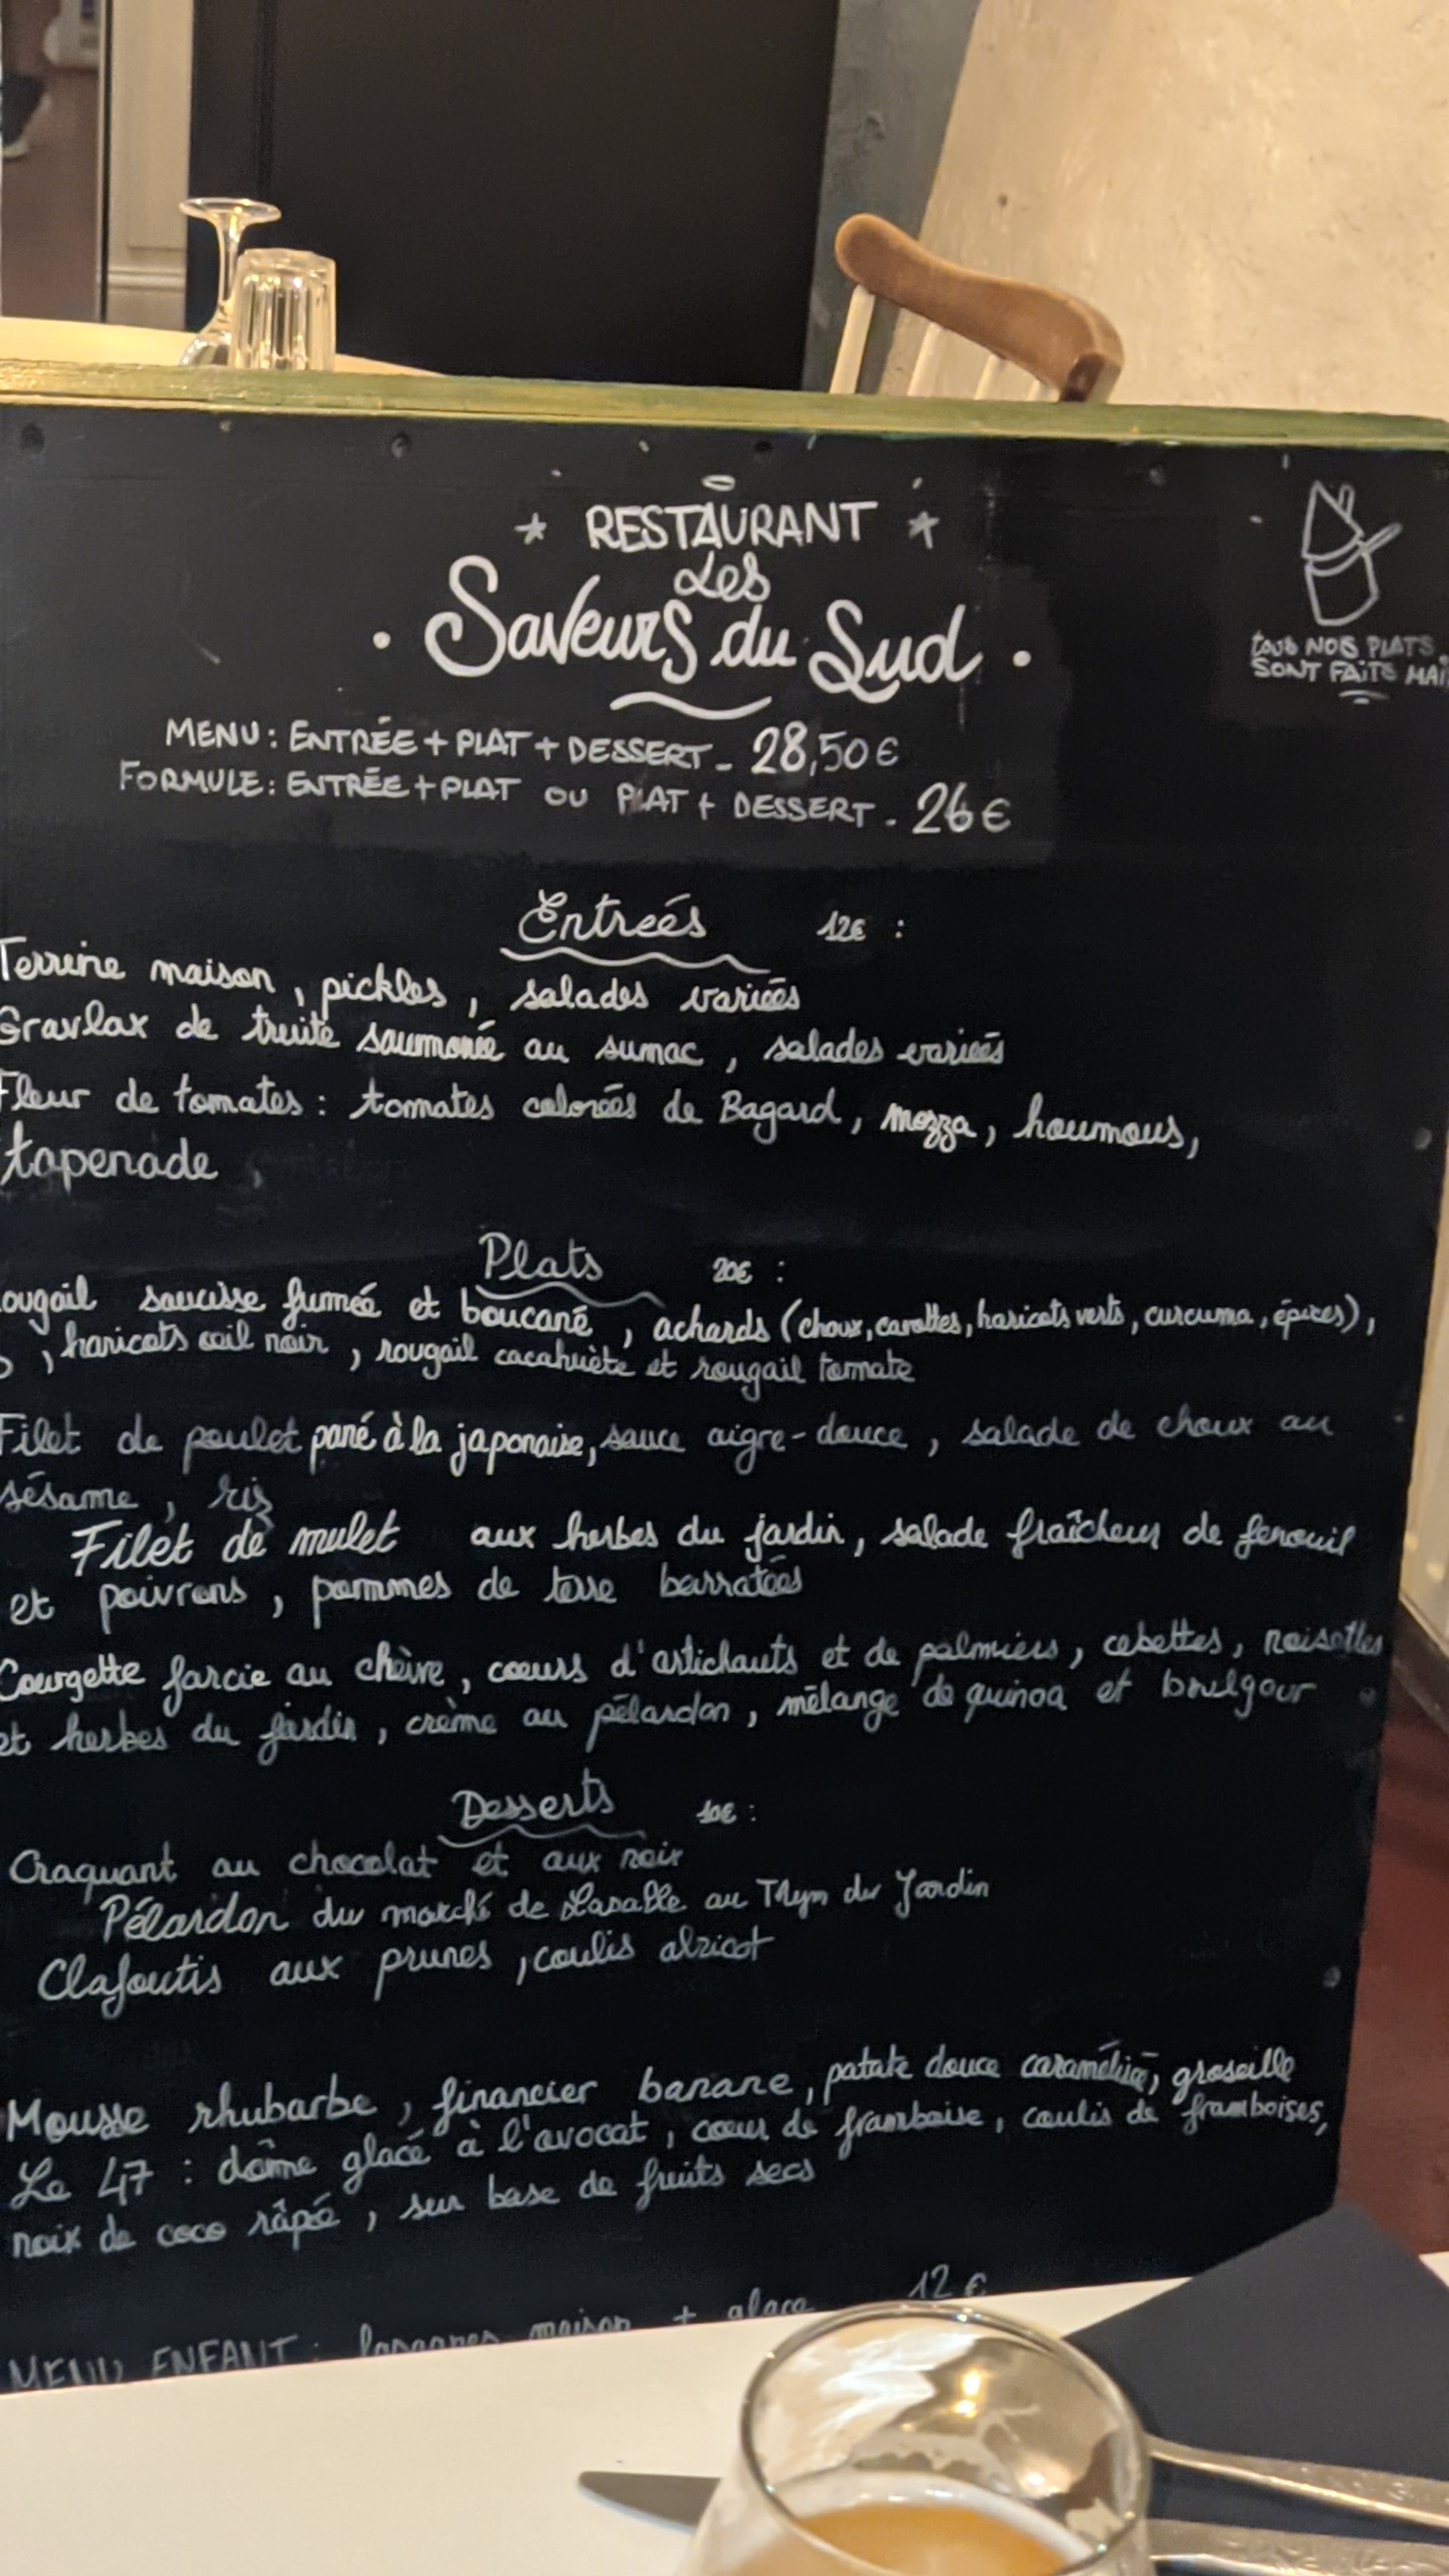 RESTAURANT
Les
Saveurs du Sud
TOUS NOS PLATS
SONT FAITS MAI
MENU: ENTRÉE + PLAT + DESSERT - 28,50€
FORMULE: ENTRÉE + PLAT OU PLAT + DESSERT - 26€
Entrées 12€ :
Terrine maison, pickles, salades variées
Gravlax de truite saumonée au sumac, salades variées
Fleur de tomates : tomates colorées de Bagard, mozza, houmous,
tapenade
Plats 20€ :
ougail saucisse fumée et boucané, achards (choux, carottes, haricots verts, curcuma, épices),
, haricots œil noir, rougail cacahuète et rougail tomate
Filet de poulet pané à la japonaise, sauce aigre-douce, salade de choux au
sésame, riz
Filet de mulet aux herbes du jardin, salade fraîcheur de fenouil
et poivrons, pommes de terre barratées
Courgette farcie au chèvre, cœurs d'artichauts et de palmiers, cebettes, noisettes
et herbes du jardin, crème au pélardon, mélange de quinoa et boulgour
Desserts 10€ :
Craquant au chocolat et aux noix
Pélardon du marché de Lasalle au Thym du Jardin
Clafoutis aux prunes, coulis abricot
Mousse rhubarbe, financier banane, patate douce caramélisé, groseille
Le 47 : dôme glacé à l'avocat, cœur de framboise, coulis de framboises,
noix de coco râpé, sur base de fruits secs
MENU ENFANT : lasagnes maison + glace 12€